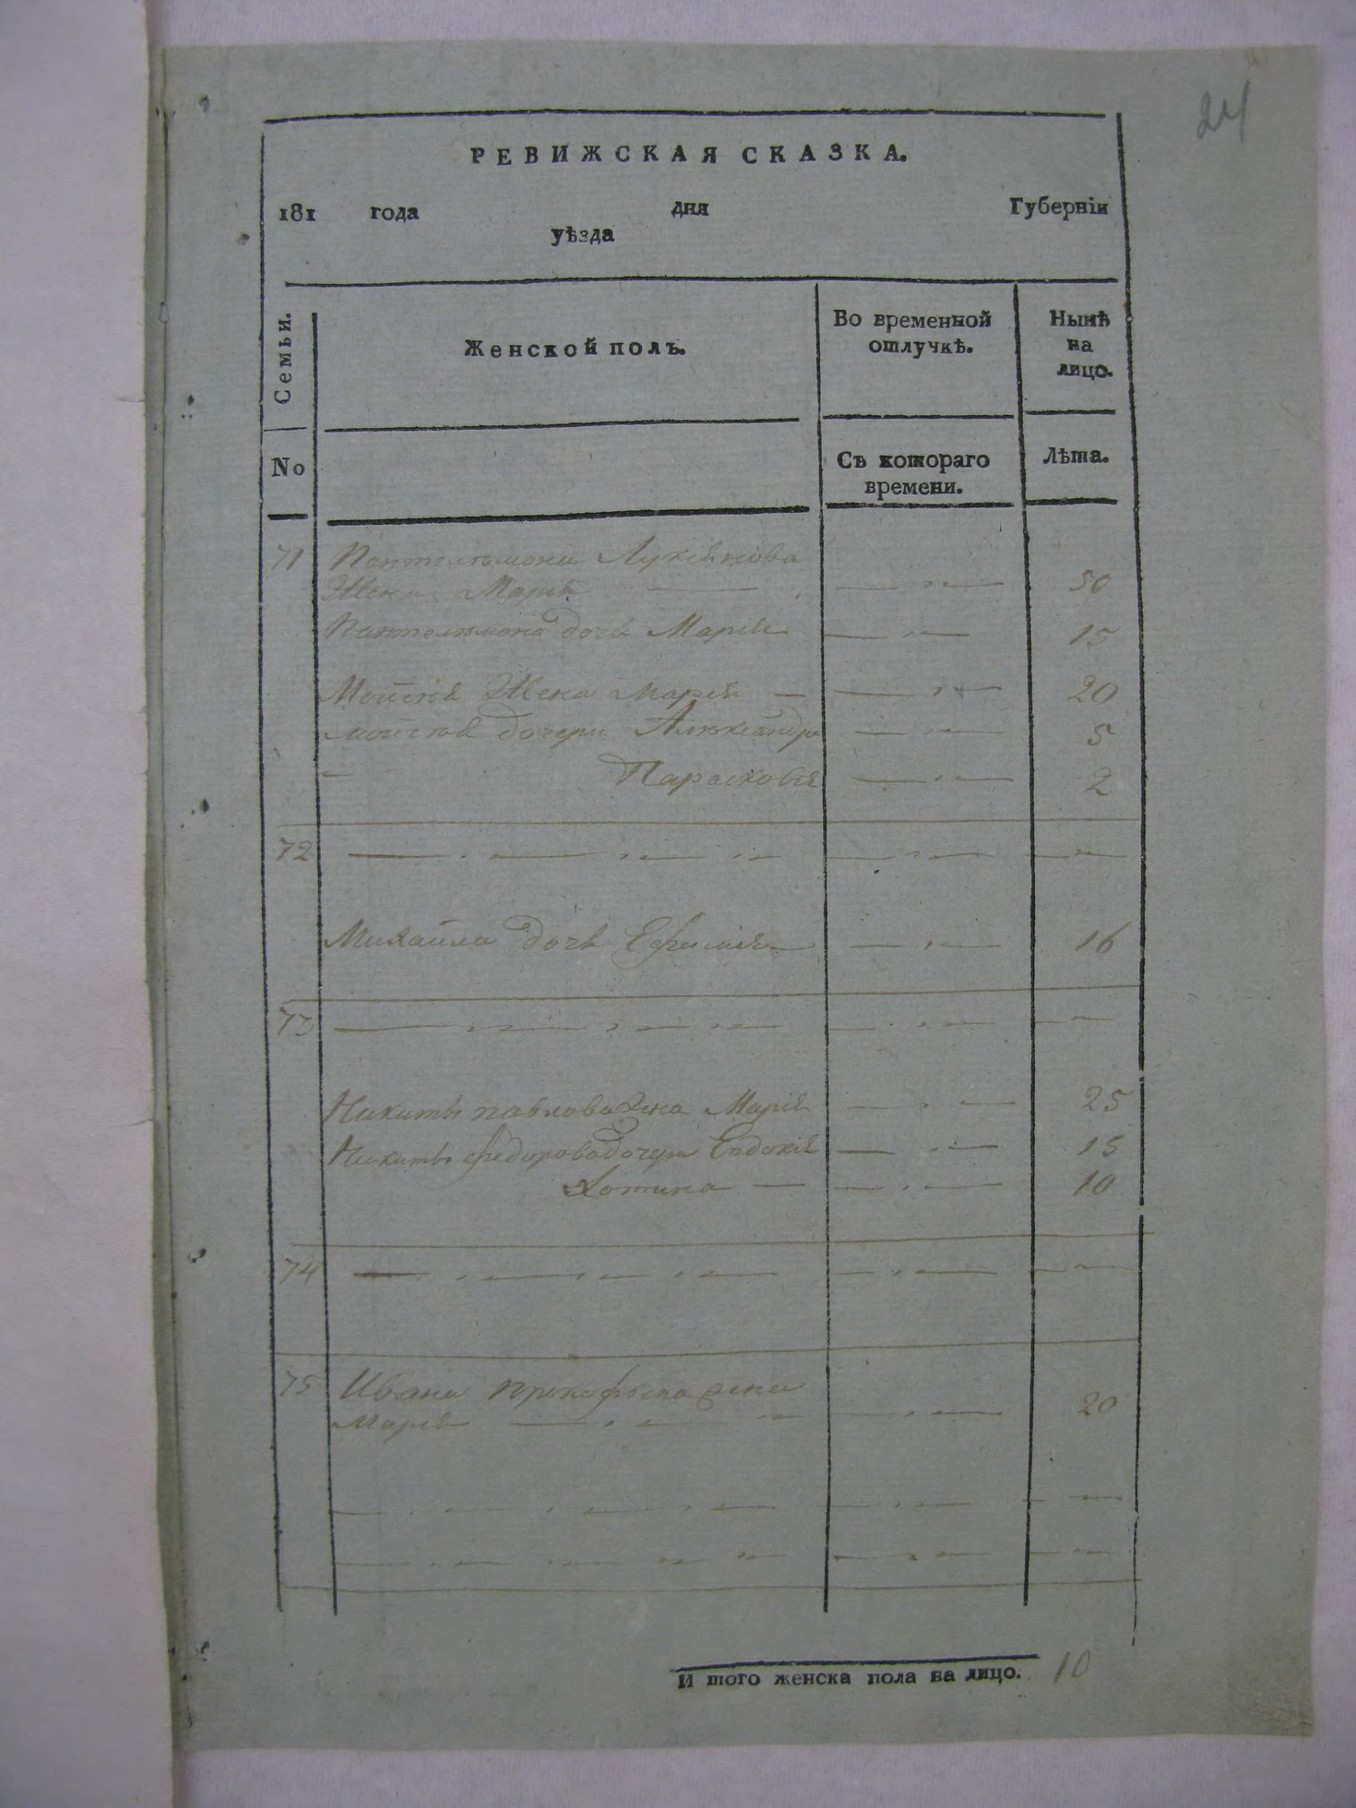 24
РЕВИЖСКАЯ СКАЗКА.
181 года дня Губернїи
уѣзда
Семьи.
Женской полъ.
Во временной
отлучкѣ.
Нынѣ
на
лицо.
No
Съ котораго
времени.
Лѣта.
71 Пантелимона
Жена Марія — „ — 50
Пантелимона дочь Марія — „ — 15
Моисея Жена Марія — — „ — 20
Моисея дочери Александра — „ — 5
— Парасковія — „ — 2
72 — „ — „ — „ — — „ — —
Михайла дочь Ефимія — „ — 16
73 — „ — „ — „ — — „ — —
Никиты павлова жена Марія — „ — 25
Никиты федорова дочери Евдокія — „ — 15
— — „ — 10
74 — „ — „ — „ — — „ — —
75 Ивана жена
Марія — „ — „ — — „ — 20
— „ — „ — „ — — „ — —
— „ — „ — „ — — „ — —
И того женска пола на лицо. 10